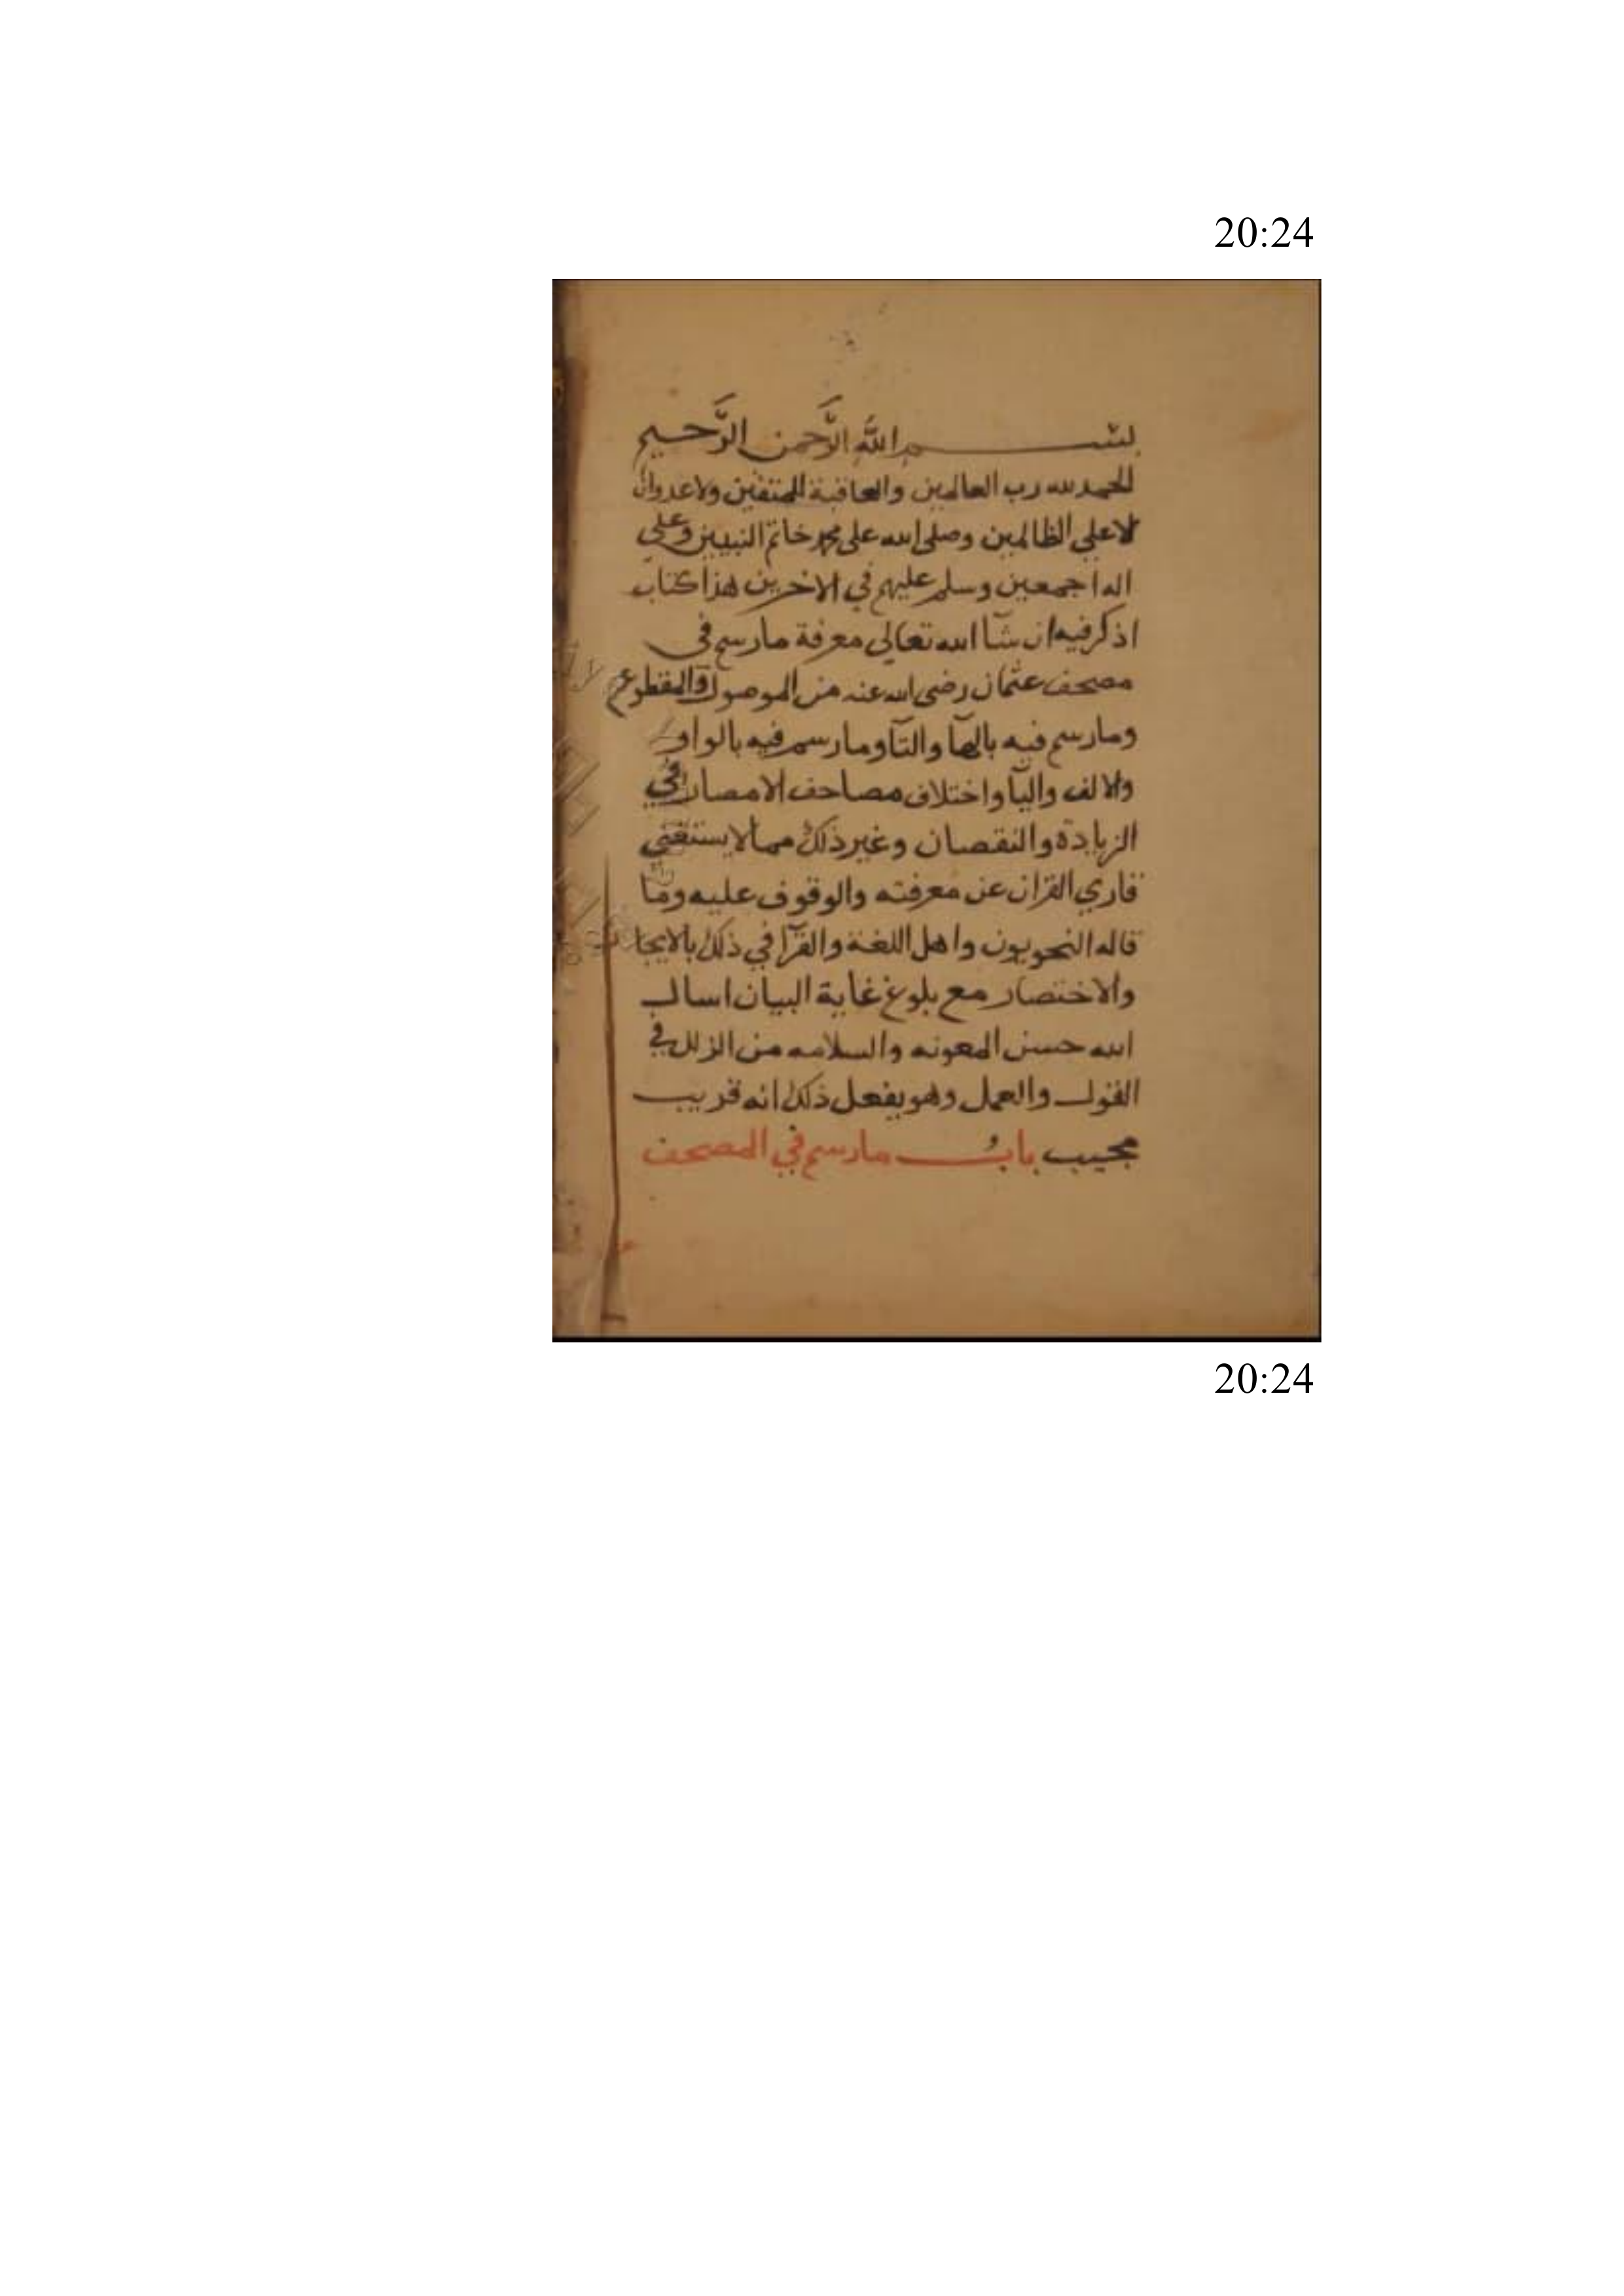 20:24
بسم الله الرَّحمن الرَّحيم
الحمد لله رب العالمين والعاقبة للمتقين ولا عدوان
الا علي الظالمين وصلى الله على محمد خاتم النبيين وعلي
اله اجمعين وسلم عليهم في الاخرين هذا كتاب
اذكر فيه ان شآ الله تعالي معرفة ما رسم في
مصحف عثمان رضى الله عنه من الموصول والمقطوع
وما رسم فيه بالهآ والتآ وما رسم فيه بالواو
والالف واليآ واختلاف مصاحف الامصار في
الزيادة والنقصان وغير ذلك مما لا يستغني
قاري القران عن معرفته والوقوف عليه وما
قاله النحويون واهل اللغة والقرآ في ذلك بالايجا
والاختصار مع بلوغ غاية البيان اسال
الله حسن المعونه والسلامه من الزلل في
القول والعمل وهو يفعل ذلك انه قريب
مجيب بابُ ما رسم في المصحف
20:24